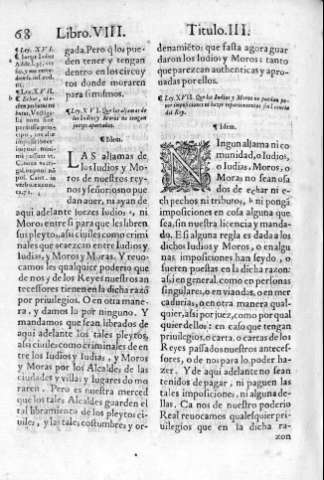 68 Libro. VIII.
gada. Pero q̃ los pue-
den tener y tengan
dentro en los circuy
tos donde moraren
para si mismos.
¶ Ley. XVI. Que las aljamas de
los Iudios y Moros no tengan
juezes apartados.
¶ Idem.
LAS aljamas de
los Iudios y Mo
ros de nuestros rey-
nos y señorio no pue
dan auer, ni ayan de
aqui adelante juezes Iudios, ni
Moros entre si para que les libren
sus pleytos, assi ciuiles como crimi
nales que acaezcan entre Iudios y
Iudias, y Moros y Moras. Y reuo
camos les qualquier poderio que
de nos y de los Reyes nuestros an
tecessores tienen en la dicha razõ
por priuilegios. O en otra mane-
ra, y damos lo por ninguno. Y
mandamos que sean librados de
aqui adelante los tales pleytos,
assi ciuiles como criminales de en
tre los Iudios y Iudias, y Moros
y Moras por los Alcaldes de las
ciudades y villas y lugares do mo
raren. Pero es nuestra merced
que los tales Alcaldes guarden el
tal libramiento de los pleytos ci-
uiles, y las tales costumbres y or-
Titulo. III.
denamiẽtos que fasta agora guar
daron los Iudios y Moros: tanto
que parezcan authenticas y apro
uadas por ellos.
¶ Ley. XVII. Que los Iudios y Moros no puedan po-
ner imposiciones ni hazer repartimientos sin licencia
del Rey.
¶ Idem.
NIngun aljama ni co
munidad, o Iudios,
o Iudias, Moros, o
Moras no sean osa
dos de echar ni e-
ch pechos ni tributos, ni pongã
imposiciones en cosa alguna que
sea, sin nuestra licencia y manda-
do. E si alguna regla es dada a los
dichos Iudios y Moros, o en algu
nas imposiciones han seydo, o
fueren puestas en la dicha razon:
assi en general, como en personas
singulares, o en viandas, o en mer
cadurias, o en otra manera qual-
quier, assi por juez, como por qual
quier dellos: en caso que tengan
priuilegios, o carta, o cartas de los
Reyes passados nuestros anteces-
sores, o de nos para lo poder ha-
zer. Y de aqui adelante no sean
tenidos de pagar, ni paguen las
tales imposiciones, ni alguna de-
llas. Ca nos de nuestro poderio
Real reuocamos qualesquier pri-
uilegios que en la dicha ra-
zon